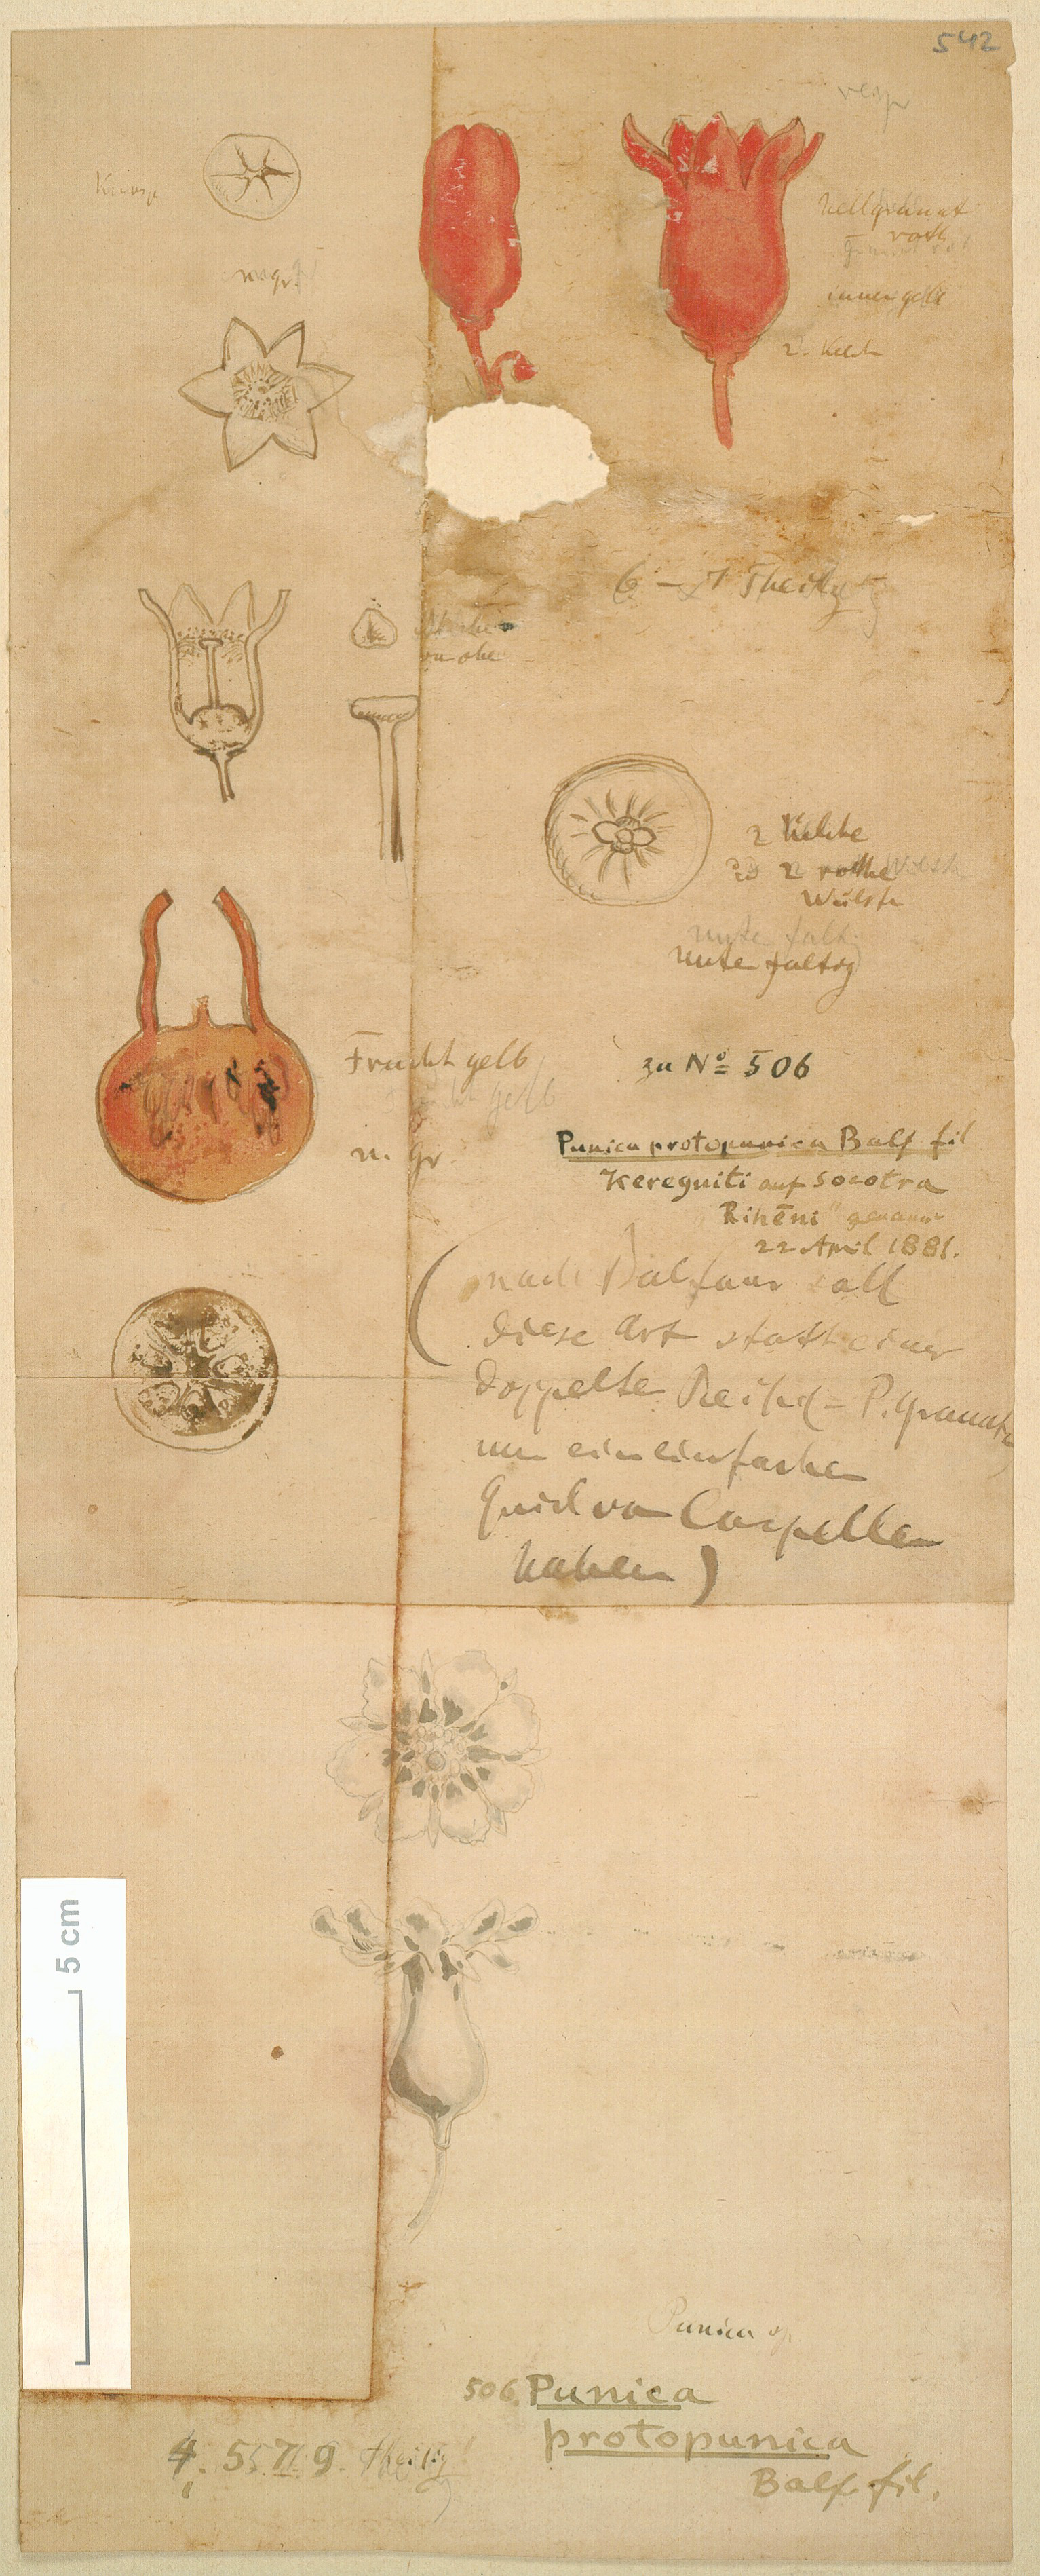 542
hellgranat
roth
innen gelb
2. Kelch
6 – 7 theilig
von obe
2 Kelche
2 rothe
Wülste
unte faltig
unte faltig
Frucht gelb
n. Gr.
zu Nº 506
Punica protopunica Balf fil
Keregniti auf Socotra
"Rihēni" genannt
22 April 1881.
(nach Balfour soll
diese Art statt einer
doppelte Reihe – P. granat
nur ein einfachen
Quirl von Carpellen
haben)
5 cm
Punica sp.
506. Punica
protopunica
Balf. fil.
4. 5. 7. 9. theilig